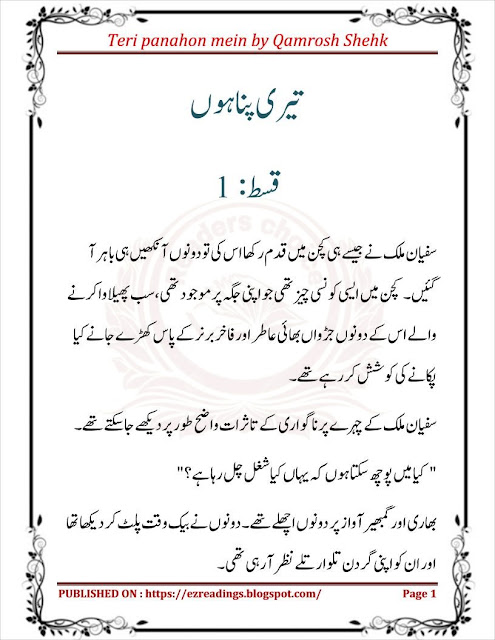 Teri panahon mein by Qamrosh Shehk
تیری پناہوں
قسط: 1
سفیان ملک نے جیسے ہی کچن میں قدم رکھا اس کی تو دونوں آنکھیں ہی باہر آ
گئیں۔ کچن میں ایسی کونسی چیز تھی جو اپنی جگہ پر موجود تھی، سب پھیلاوا کرنے
والے اس کے دونوں جڑواں بھائی عاطر اور فاخر برنر کے پاس کھڑے جانے کیا
پکانے کی کوشش کر رہے تھے۔
سفیان ملک کے چہرے پر ناگواری کے تاثرات واضح طور پر دیکھے جا سکتے تھے۔
" کیا میں پوچھ سکتا ہوں کہ یہاں کیا شغل چل رہا ہے؟"
بھاری اور گمبھیر آواز پر دونوں اچھلے تھے۔ دونوں نے بیک وقت پلٹ کر دیکھا تھا
اور ان کو اپنی گردن تلوار تلے نظر آ رہی تھی۔
PUBLISHED ON : https://ezreadings.blogspot.com/ Page 1